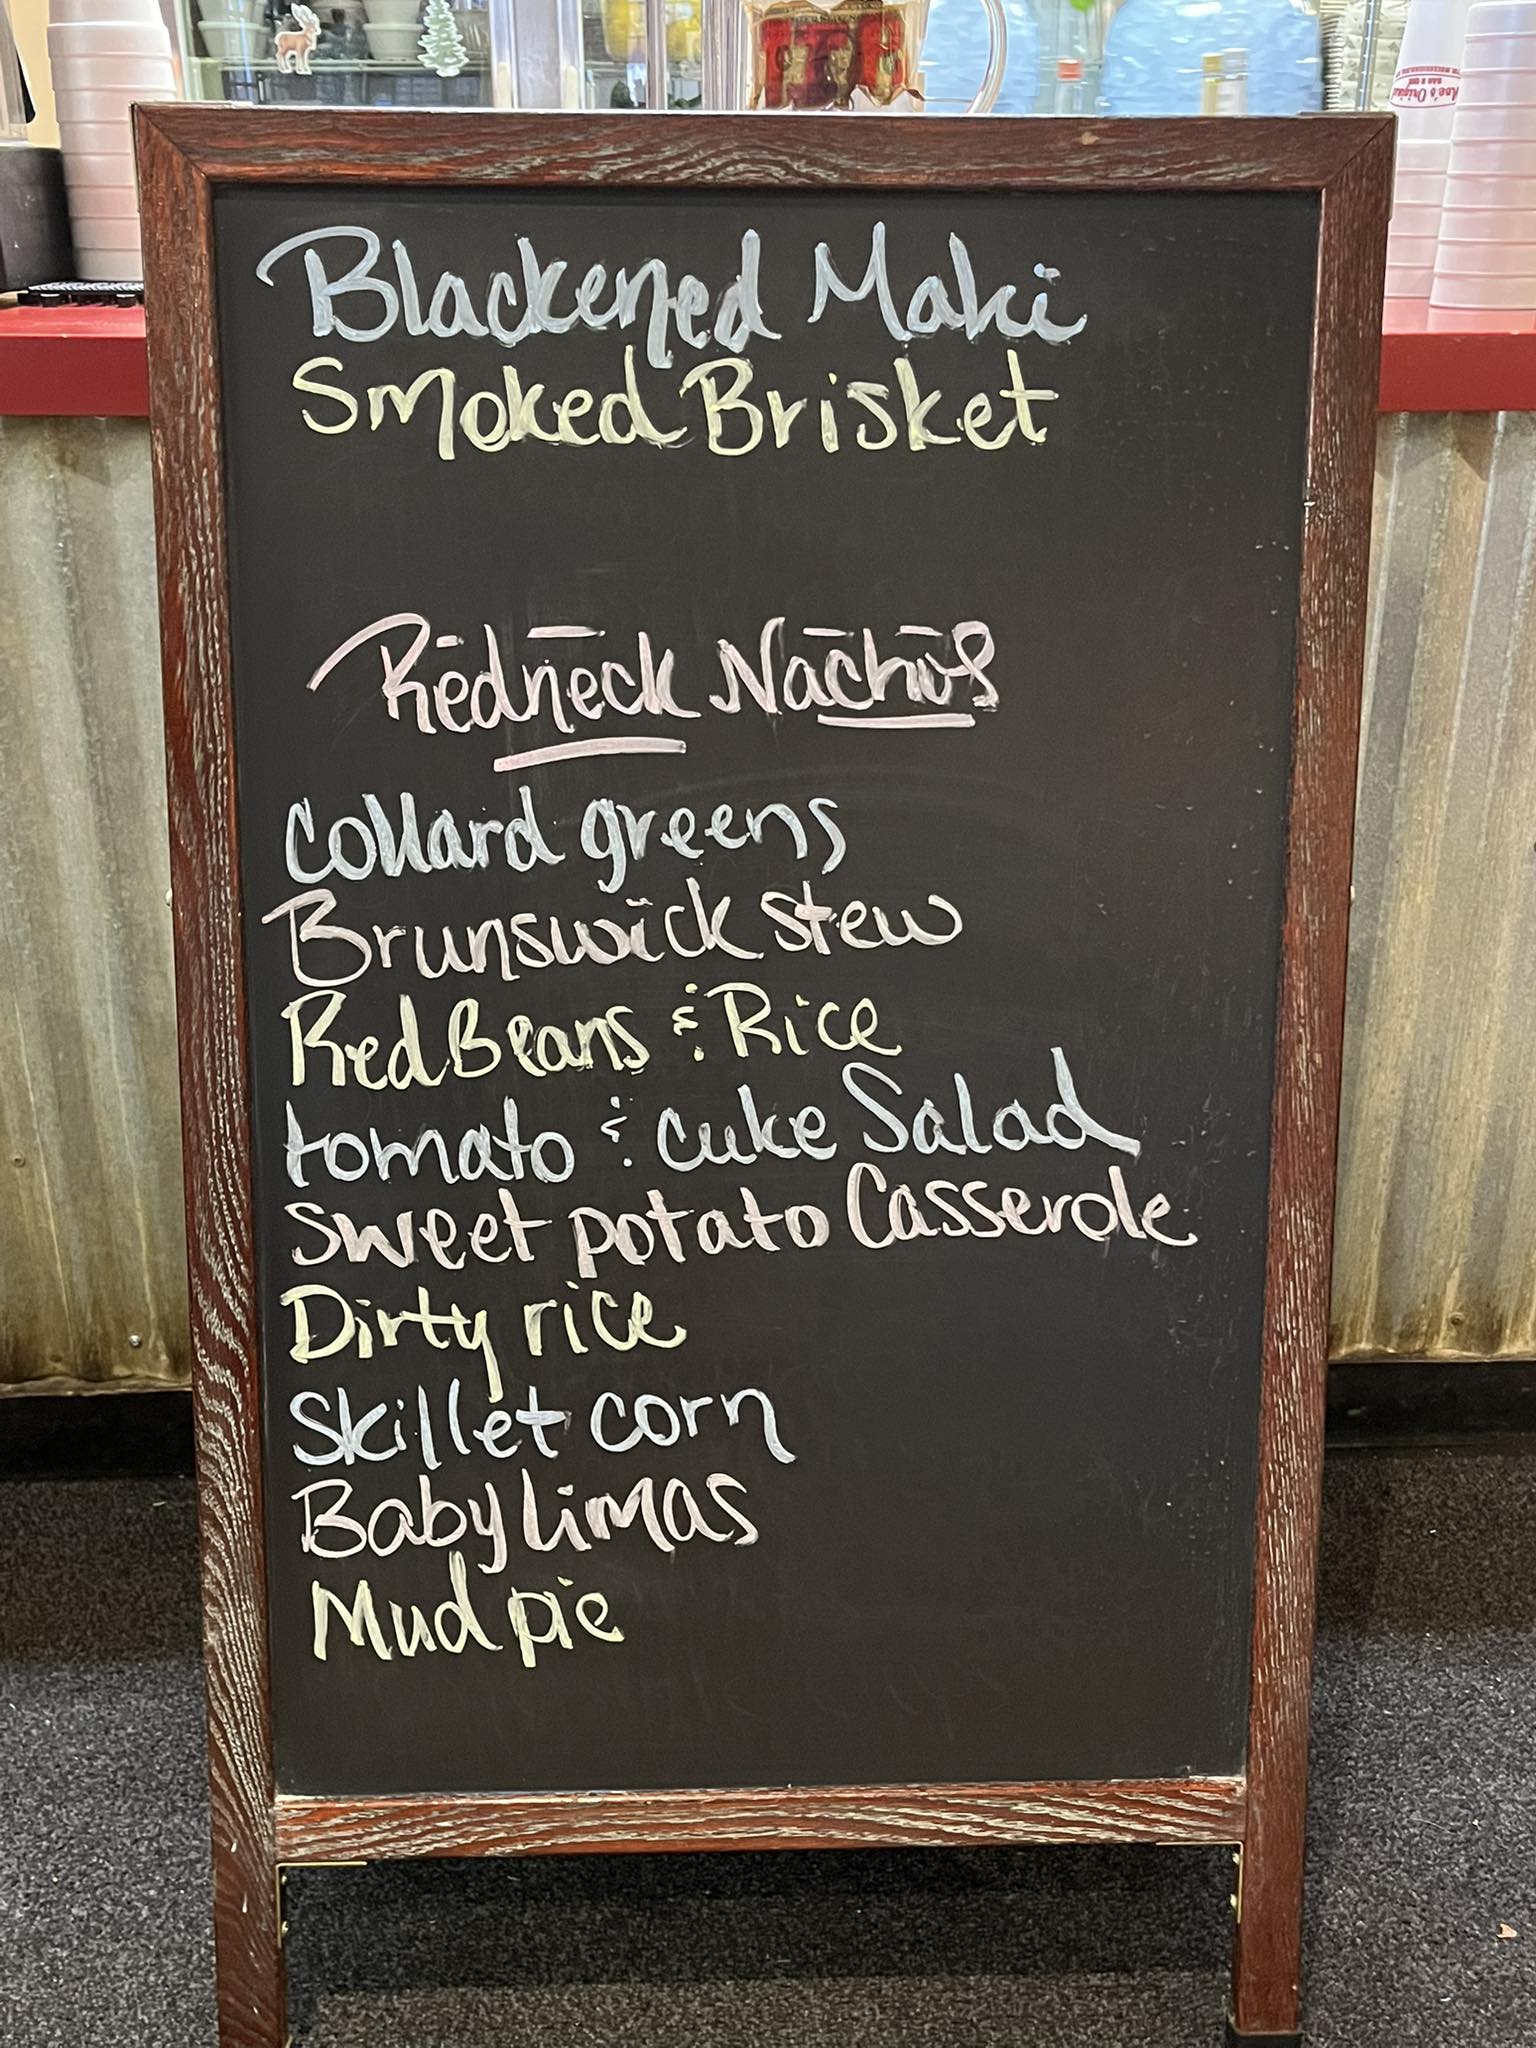 Moe's Original
BAR B QUE
Blackened Mahi
Smoked Brisket
Redneck Nachos
Collard greens
Brunswick stew
Red Beans & Rice
tomato & cuke Salad
sweet potato Casserole
Dirty rice
Skillet corn
Baby limas
Mud pie